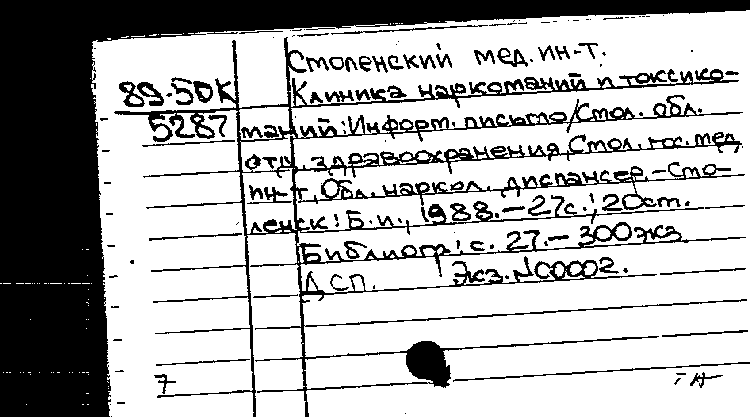 Смоленский мед. ин-т.
89-50К Клиника наркоманий и токсико-
5287 маний: Информ. письмо/Смол. обл.
отд. здравоохранения, Смол. гос. мед.
ин-т, Обл. наркол. диспансер.-Смо-
ленск: Б.и., 1988.-27с.; 20см.
Библиогр: с. 27.- 300экз.
ДСП. Экз. N00002.
7